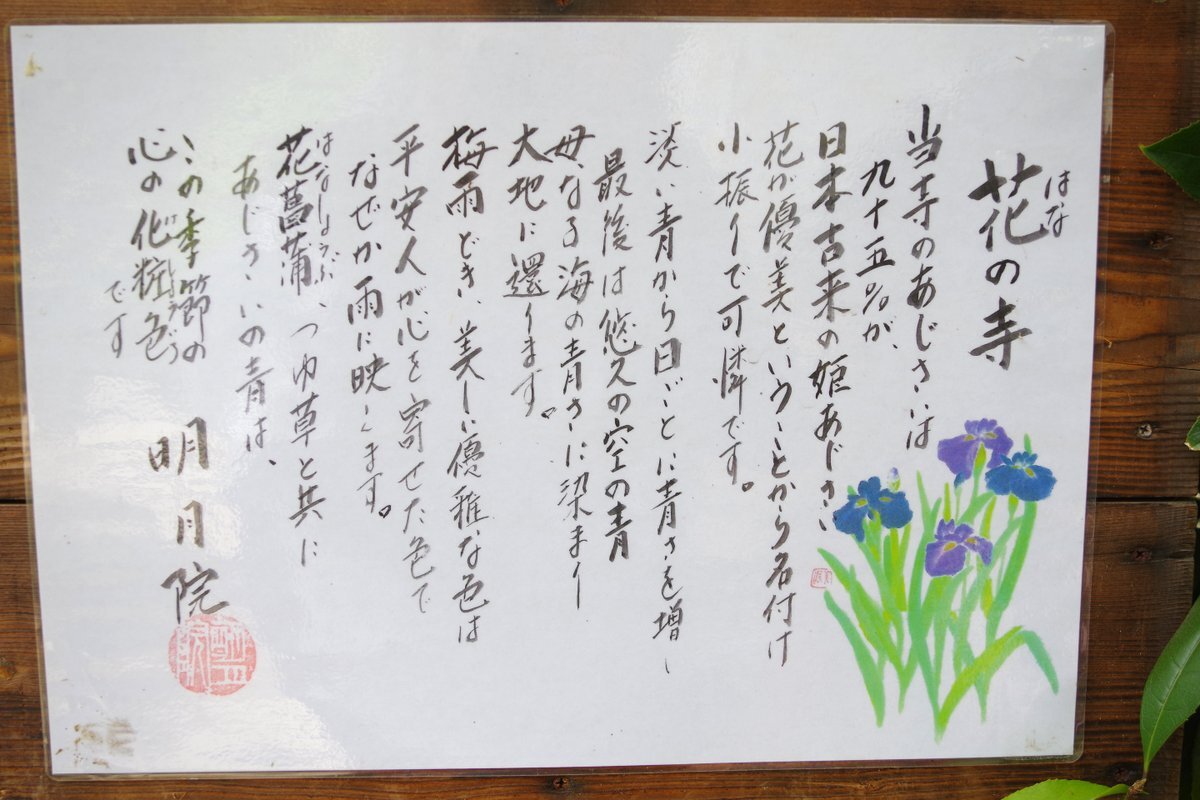 花の寺
はな
当寺のあじさいは
九十五%が、
日本古来の姫あじさい
花が優美ということから名付け
小振りで可憐です。
淡い青から日ごとに青さを増し
最後は悠久の空の青
母なる海の青さに染まり
大地に還ります。
梅雨どき、美しい優雅な色は
平安人が心を寄せた色で
なぜか雨に映えます。
花菖蒲、つゆ草と共に
はなしょうぶ
あじさいの青は、
この季節の
心の化粧色
けしょういろ
です
明月院